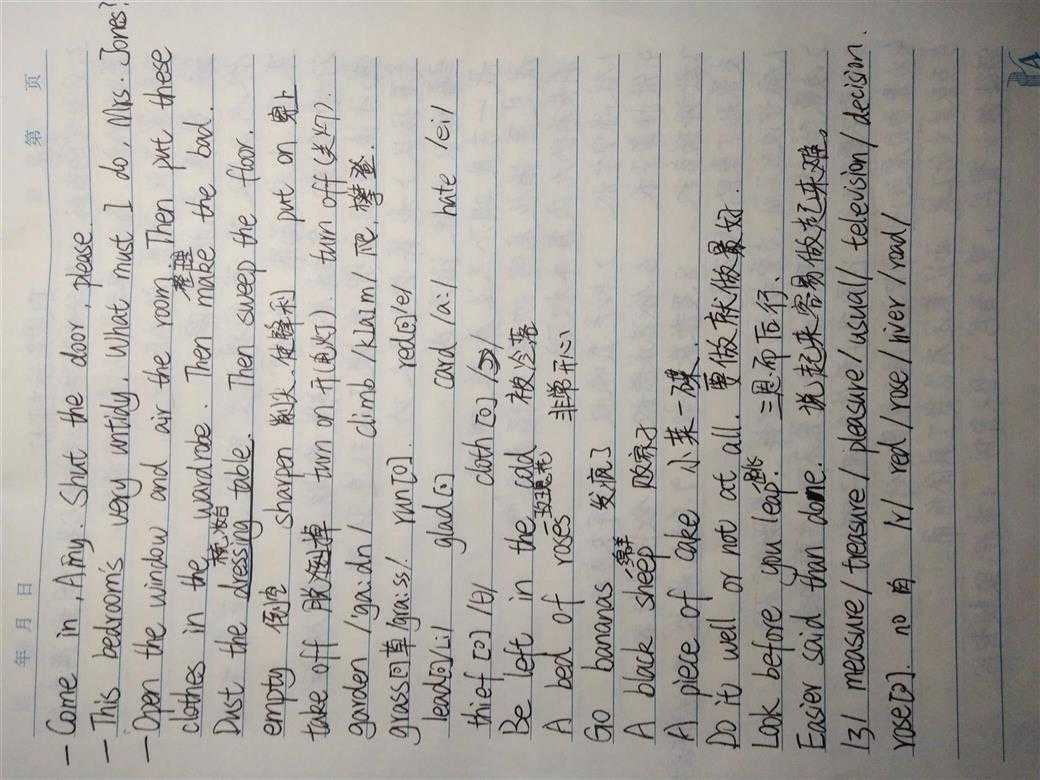 年 月 日 第 页
— Come in, Amy. Shut the door, please.
— This bedroom's very untidy. What must I do, Mrs. Jones?
— Open the window and air the room. Then put these
整理
clothes in the wardrobe. Then make the bad.
梳妆台
Dust the dressing table. Then sweep the floor.
empty 倒空 sharpen 削尖,使锋利 put on 穿上
take off 脱掉 turn on 开(电灯). turn off (关灯).
garden /'ga:dn/ climb /klaim/ 爬,攀登.
grass 草 /gra:ss/. run [] . red /e/
lead /i/ glad [] card /a:/ hate /ei/
thief [] /θ/ cloth [] /
Be left in the cold 被冷落
一玫瑰花
A bed of roses 非常开心
Go bananas 发疯了
A black sheep 败家子
A piece of cake 小菜一碟.
Do it well or not at all. 要做就做最好.
跳
Look before you leap. 三思而后行、
Easier said than done. 说起来容易做起来难。
[3] measure / treasure / pleasure / usual / television / decision.
rose []. no /r/ red / rose / river / road /